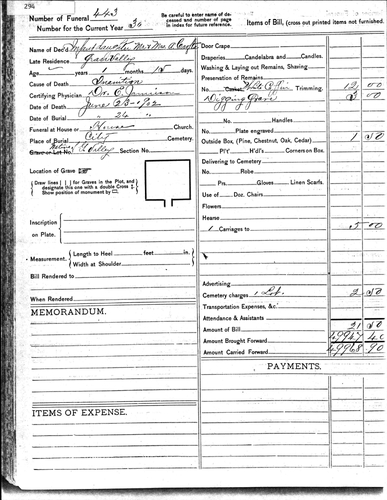 294
Number of Funeral 443
Number for the Current Year 36
Be careful to enter name of deceased and number of page in index for future reference.
Items of Bill, (cross out printed items not furnished.)
Name of Dec'd Infant daughter Mr & Mrs A.
Late Residence Valley
Age years 1 months 15 days
Cause of Death Inanition
Certifying Physician Dr. E. Jamison
Date of Death June 23-1902
Date of Burial " 24 "
Funeral at House or House Church.
Place of Burial City Cemetery.
Grave or Lot No. Valley Section No.
Location of Grave
Draw lines for Graves in the Plot, and designate this one with a double Cross
Show position of monument by
Inscription on Plate.
Measurement. Length to Heel feet in.
Width at Shoulder
Bill Rendered to
When Rendered
MEMORANDUM.
ITEMS OF EXPENSE.
Door Crape
Draperies Candelabra and Candles.
Washing & Laying out Remains, Shaving
Preservation of Remains
No. Casket, White Trimming. 12 00
Digging Grave 3 00
No. Handles
Plate engraved
Outside Box, (Pine, Chestnut, Oak, Cedar) 1 50
P'l'r H'dl's Corners on Box.
Delivering to Cemetery
No. Robe
Prs. Gloves Linen Scarfs.
Use of Doz. Chairs
Flowers
Hearse
1 Carriages to 5 00
Advertising
Cemetery charges 1 Lot. 2 50
Transportation Expenses, &c.
Attendance & Assistants
Amount of Bill 21 50
Amount Brought Forward 49947 40
Amount Carried Forward 49968 90
PAYMENTS.